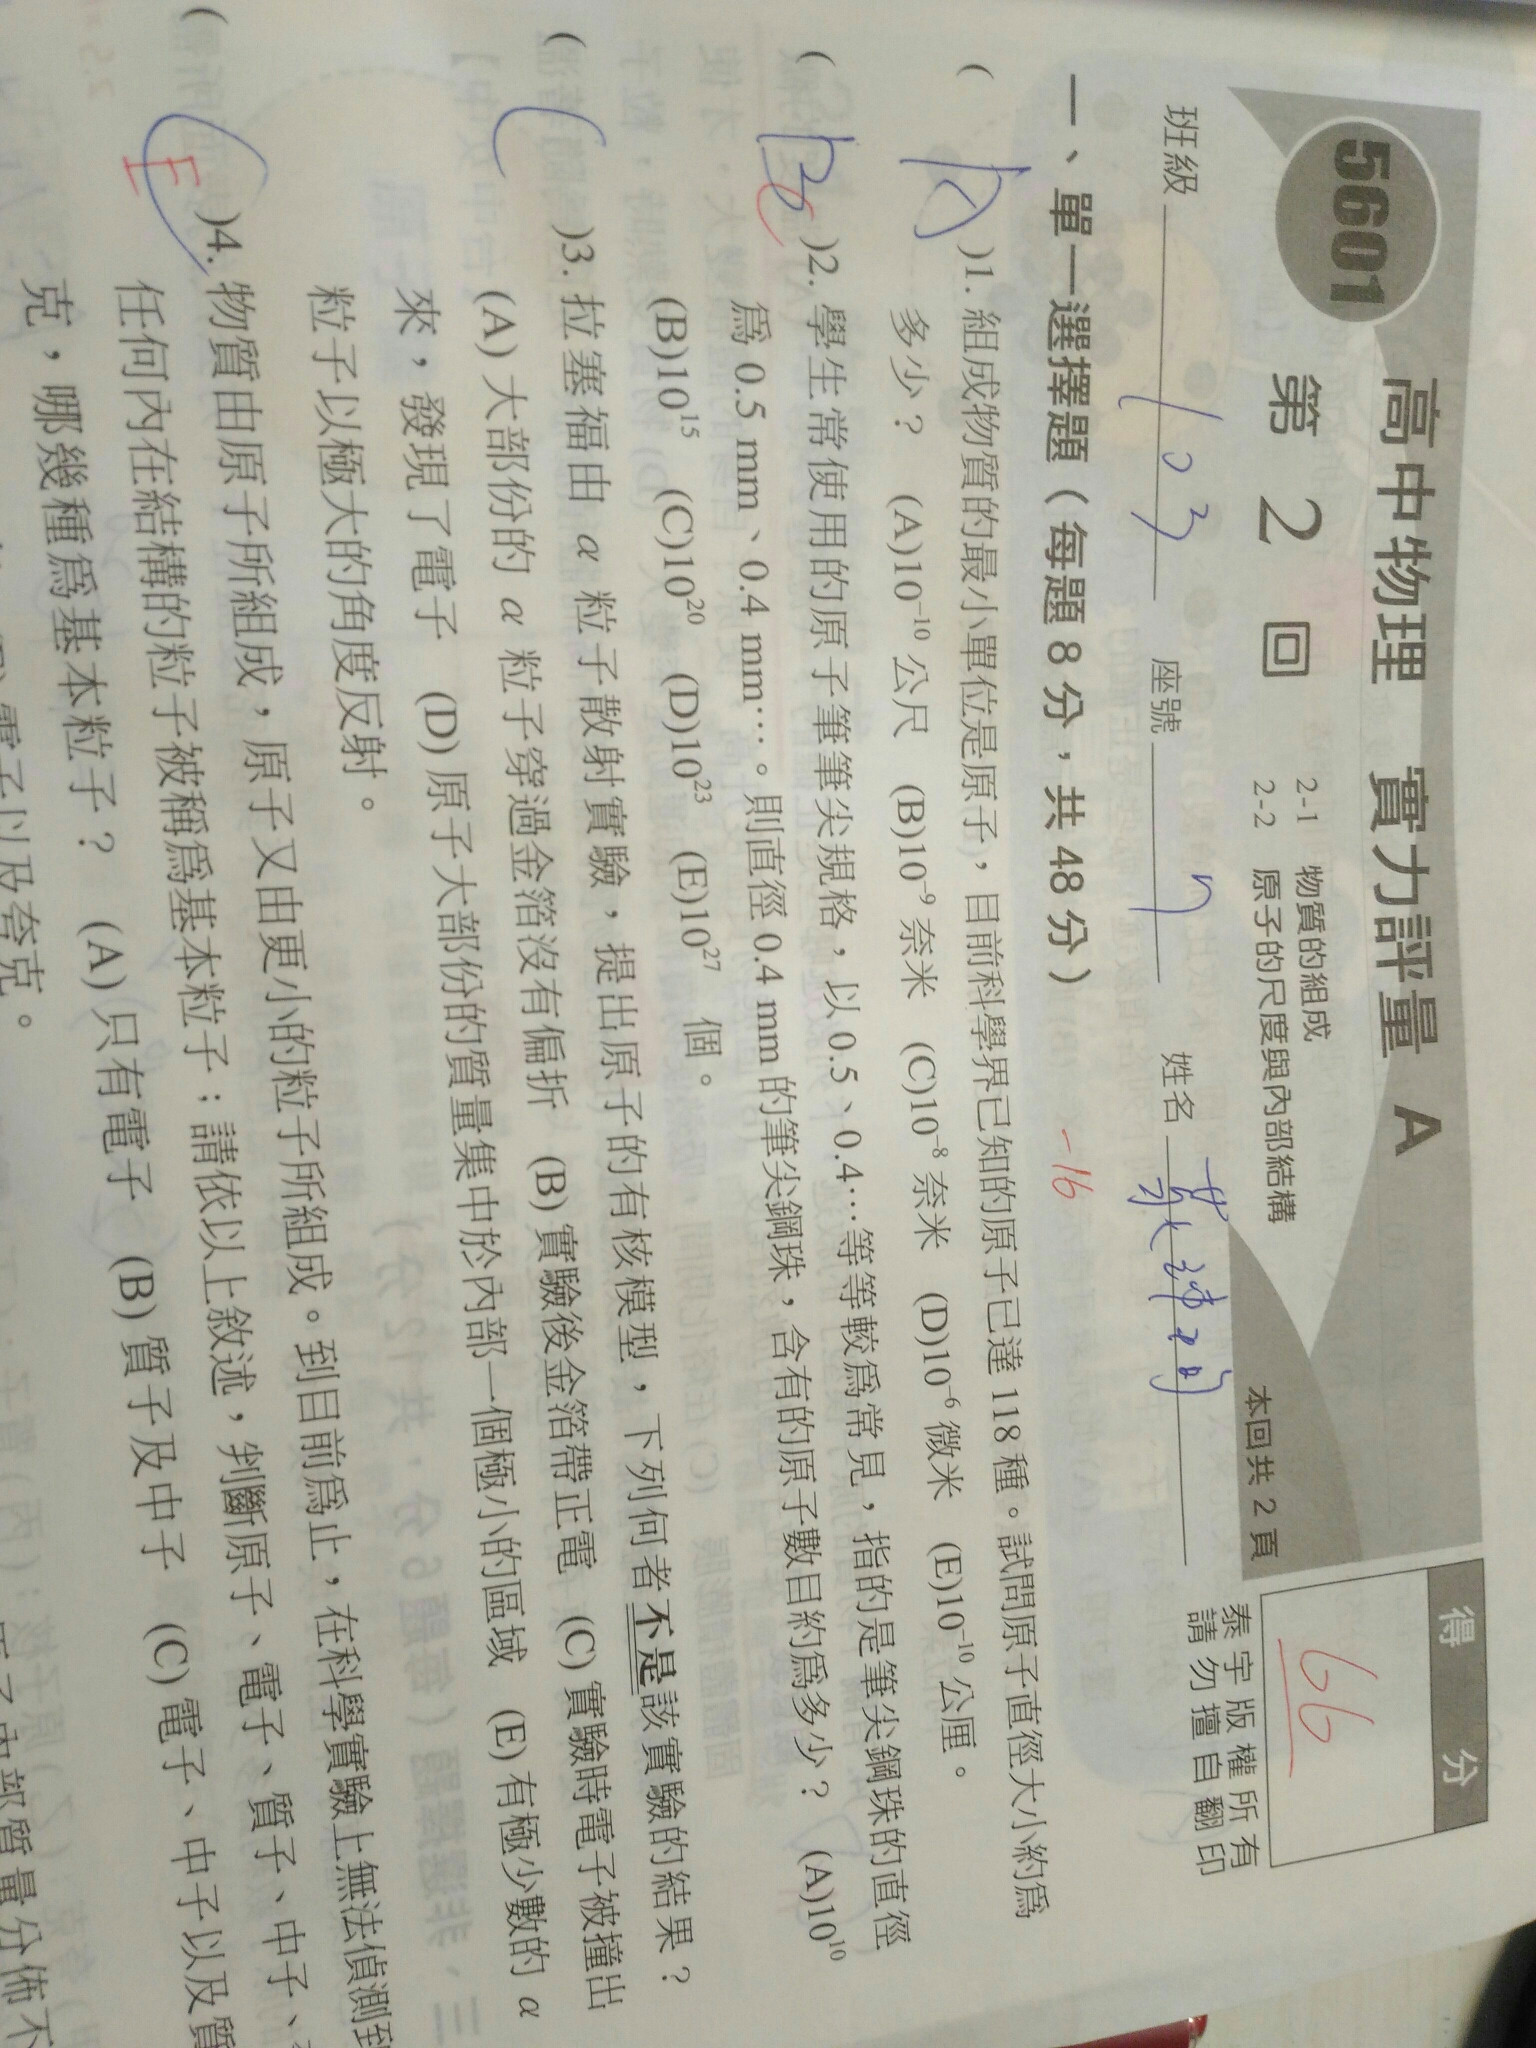 5601
高中物理 實力評量 A
第 2 回
2-1 物質的組成
2-2 原子的尺度與內部結構
本回共 2 頁
得 分
66
泰宇版權所有
請勿擅自翻印
班級 103 座號 7 姓名
一、單一選擇題(每題 8 分,共 48 分) -16
( A )1. 組成物質的最小單位是原子,目前科學界已知的原子已達 118 種。試問原子直徑大小約為
多少? (A)10⁻¹⁰ 公尺 (B)10⁻⁹ 奈米 (C)10⁻⁸ 奈米 (D)10⁻⁶ 微米 (E)10⁻¹⁰ 公厘。
( B C )2. 學生常使用的原子筆筆尖規格,以 0.5、0.4…等等較為常見,指的是筆尖鋼珠的直徑
為 0.5 mm、0.4 mm…。則直徑 0.4 mm 的筆尖鋼珠,含有的原子數目約為多少? (A)10¹⁰
(B)10¹⁵ (C)10²⁰ (D)10²³ (E)10²⁷ 個。
( C )3. 拉塞福由 α 粒子散射實驗,提出原子的有核模型,下列何者不是該實驗的結果?
(A) 大部份的 α 粒子穿過金箔沒有偏折 (B) 實驗後金箔帶正電 (C) 實驗時電子被撞出
來,發現了電子 (D) 原子大部份的質量集中於內部一個極小的區域 (E) 有極少數的 α
粒子以極大的角度反射。
( C E )4. 物質由原子所組成,原子又由更小的粒子所組成。到目前為止,在科學實驗上無法偵測到
任何內在結構的粒子被稱為基本粒子;請依以上敘述,判斷原子、電子、質子、中子、
克,哪幾種為基本粒子? (A) 只有電子 (B) 質子及中子 (C) 電子、中子以及質
電子以及夸克。
內部質量分佈不